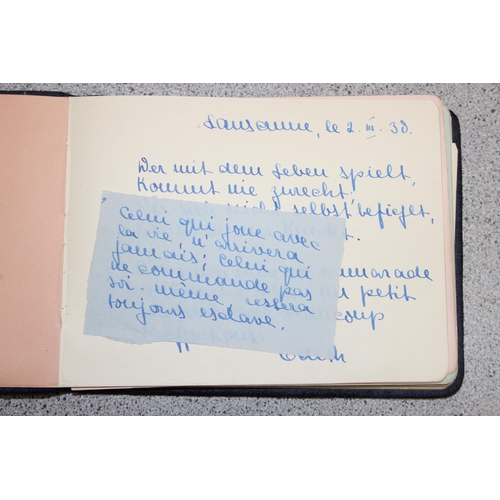 Lausanne, le 2. III. 38.
Der mit dem Leben spielt,
Kommt nie zurecht;
selbst befiehlt,
t.
Celui qui joue avec
la vie n'arrivera
jamais; Celui qui
ne commande pas
soi-même, restera
toujours esclave.
camarade
petit
coup